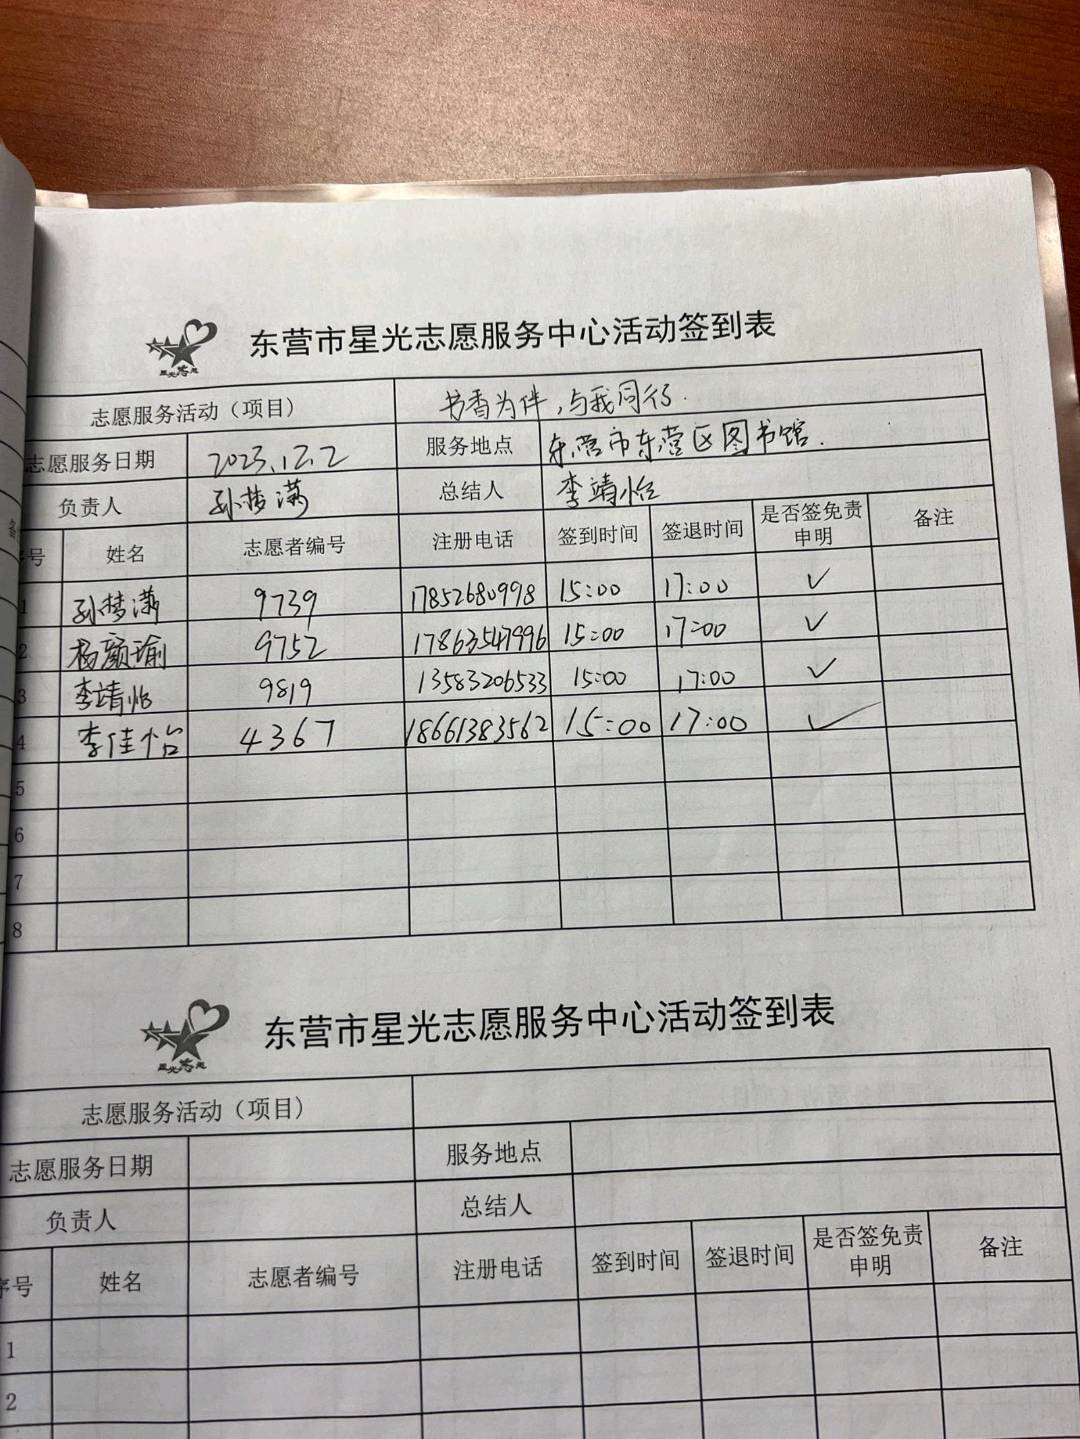 东营市星光志愿服务中心活动签到表
星光志愿
志愿服务活动（项目） 书香为伴，与我同行.
志愿服务日期 2023.12.2 服务地点 东营市东营区图书馆.
负责人 孙梦潇 总结人 李靖怡
序号 姓名 志愿者编号 注册电话 签到时间 签退时间 是否签免责申明 备注
1 孙梦潇 9739 17852680998 15:00 17:00 ✓
2 杨颜瑜 9752 17863547996 15:00 17:00 ✓
3 李靖怡 9819 13583206533 15:00 17:00 ✓
4 李佳怡 4367 18661383562 15:00 17:00 ✓
5
6
7
8
东营市星光志愿服务中心活动签到表
星光志愿
志愿服务活动（项目）
志愿服务日期 服务地点
负责人 总结人
序号 姓名 志愿者编号 注册电话 签到时间 签退时间 是否签免责申明 备注
1
2